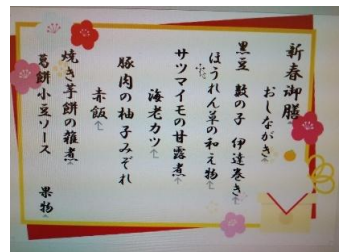 新春御膳
おしながき
黒豆 数の子 伊達巻き
ほうれん草の和え物
サツマイモの甘露煮
海老カツ
豚肉の柚子みぞれ
赤飯
焼き芋餅の雑煮
葛餅小豆ソース 果物